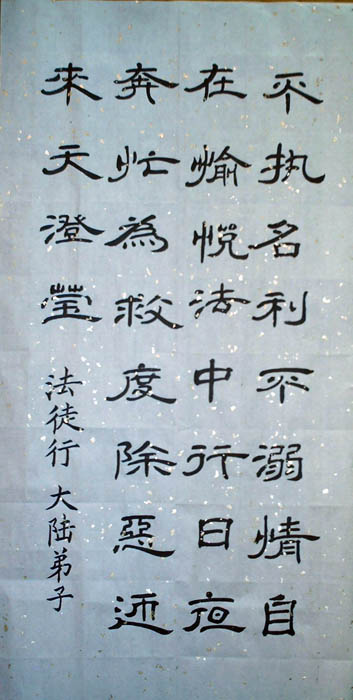 不执名利不溺情自
在愉悅法中行日夜
奔忙為救度除惡迎
來天澄瑩
法徒行 大陸弟子